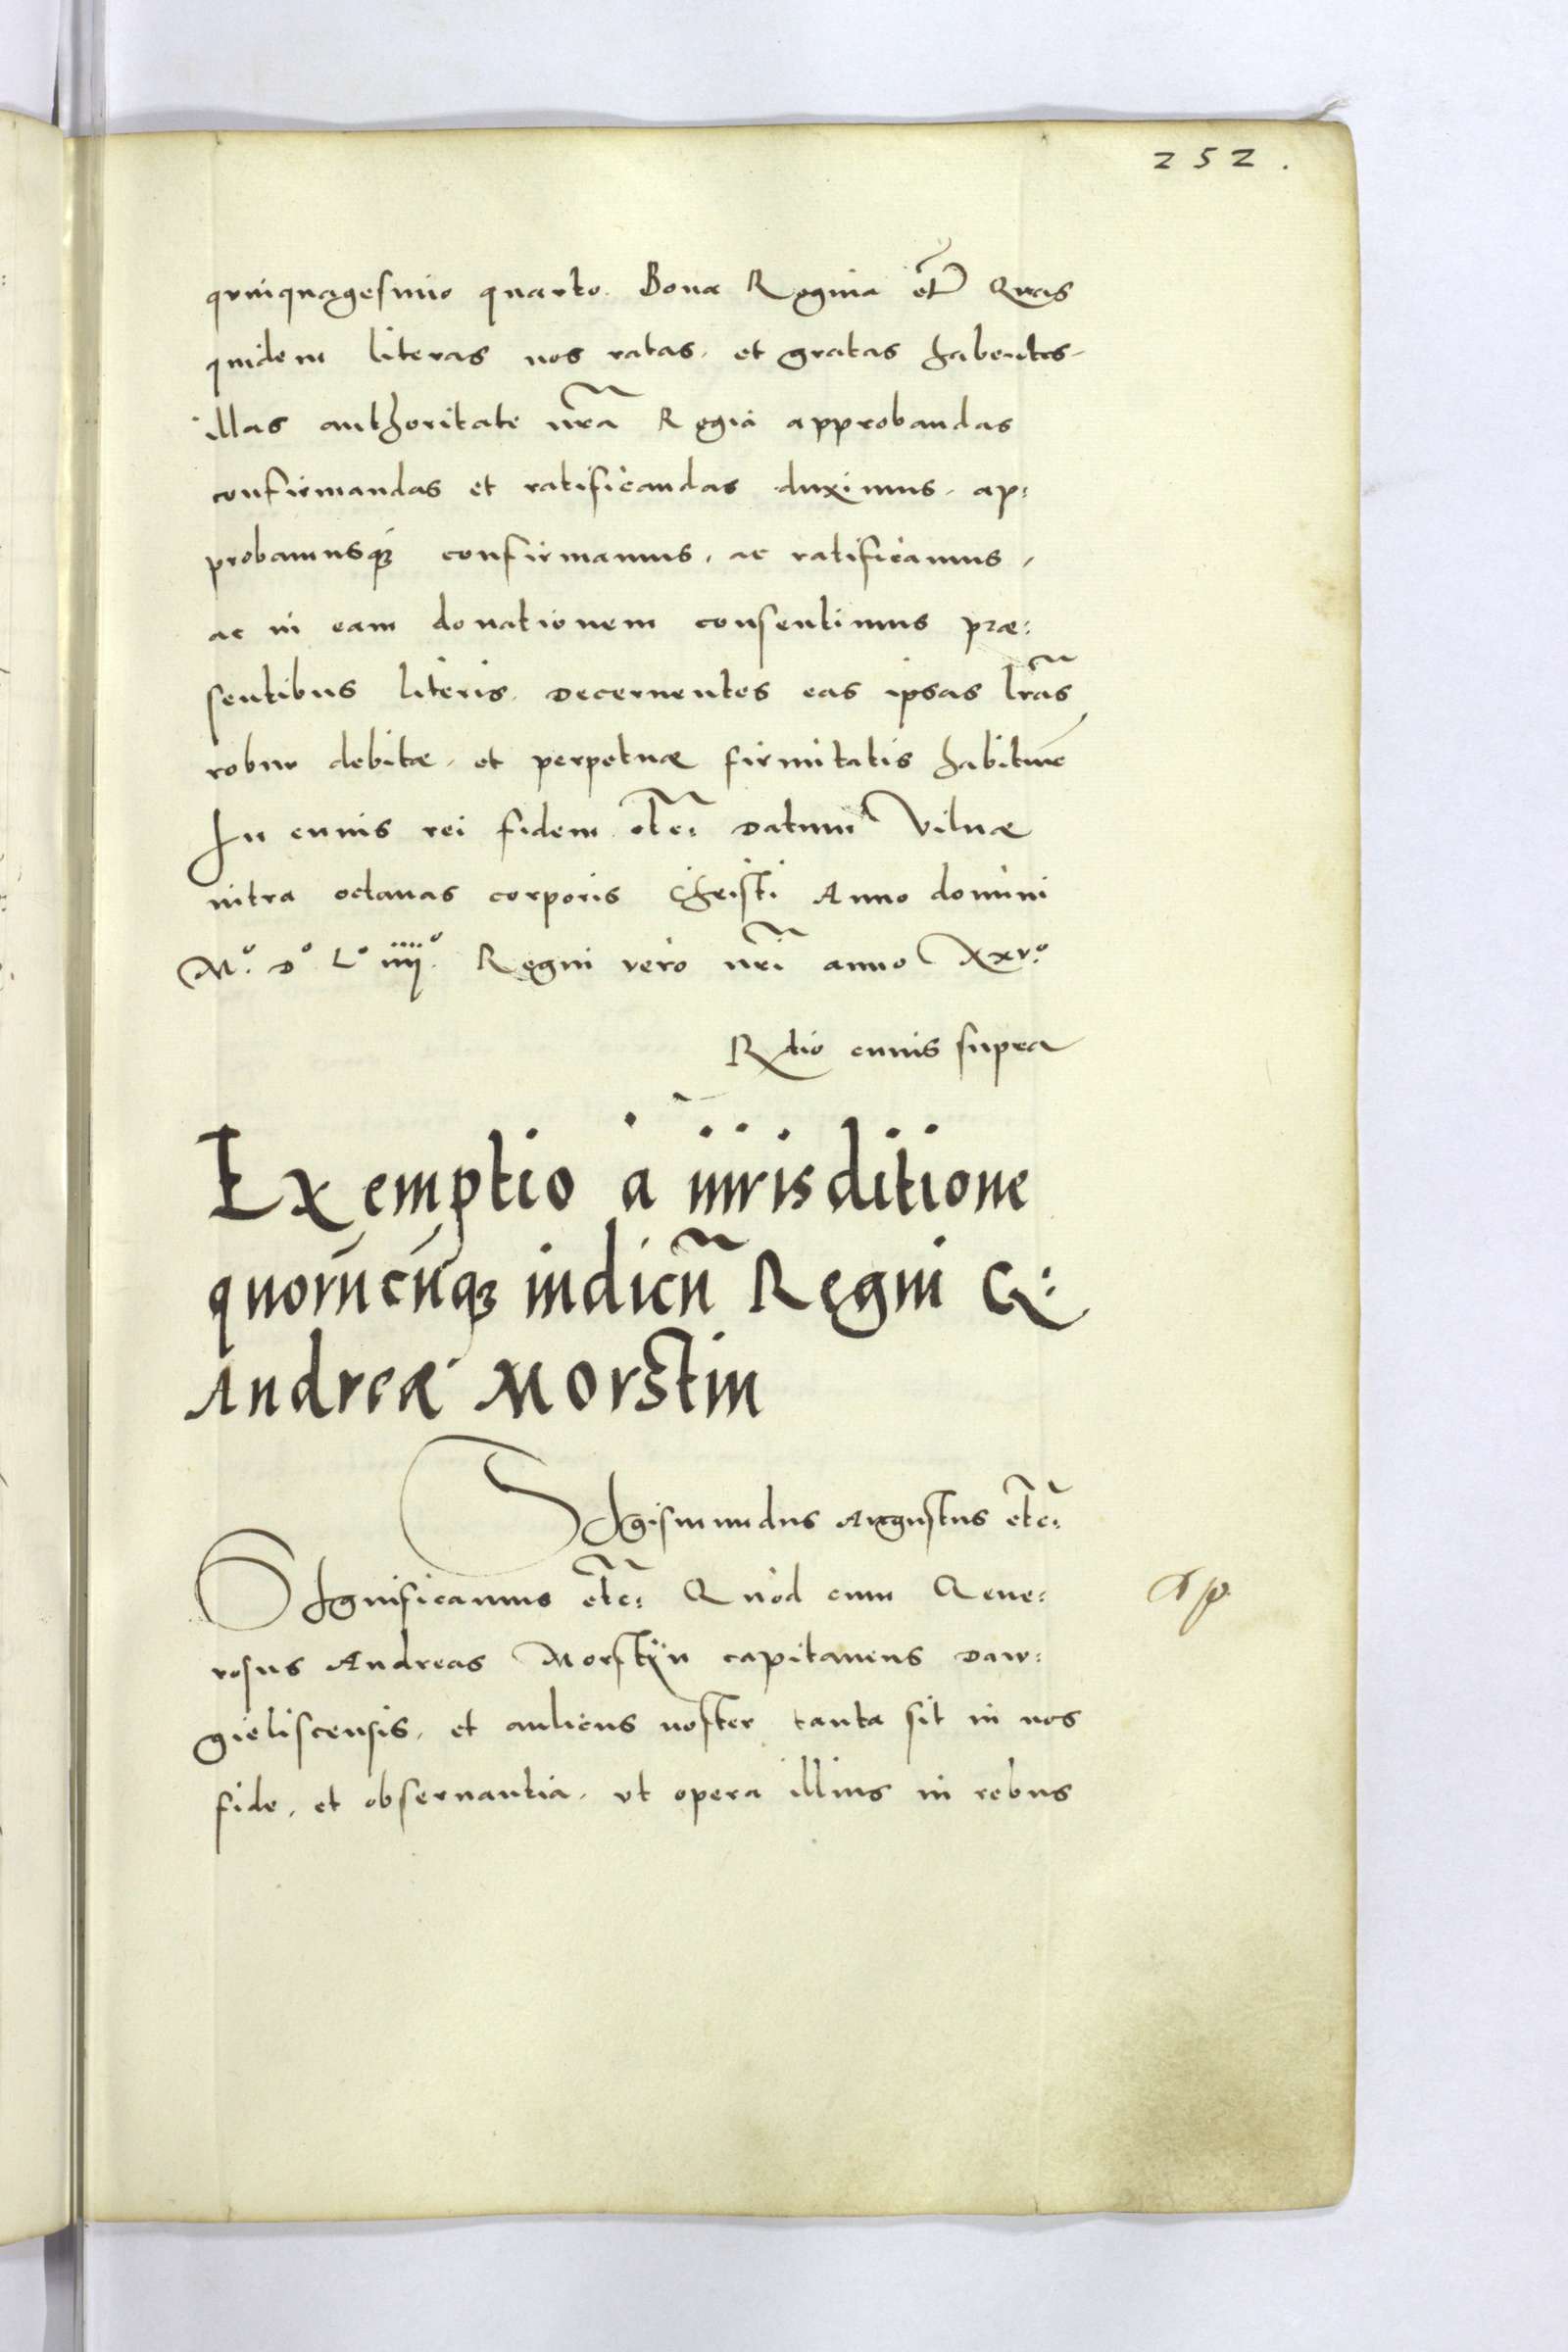 252.
quinquagesimo quarto. Bona Regina etc̃ Quas
quidem literas nos ratas, et gratas habentes,
illas authoritate nr̃a Regia approbandas
confirmandas et ratificandas duximus, ap:
probamusqʒ confirmamus, ac ratificamus,
ac in eam donationem consentimus præ:
sentibus literis. Decernentes eas ipsas lr̃as
robur debitæ, et perpetuæ firmitatis habiturã
In cuius rei fidem etc̃: Datum Vilnæ
intra octauas corporis Christi Anno domini
Mº. Dº Lº iiijº. Regni vero nr̃i anno Xxvº.
Rtio cuius supra
Exemptio à iurisditione
quorũcũqʒ iudicũ Regni G:
Andreæ Morstin
SIgismundus Augustus etc̃:
SIgnificamus etc̃: Quod cum Gene:
rosus Andreas Morstÿn capitaneus Daw:
gieliscensis, et aulicus noster tanta sit in nos
fide, et obseruantia, vt opera illius in rebus